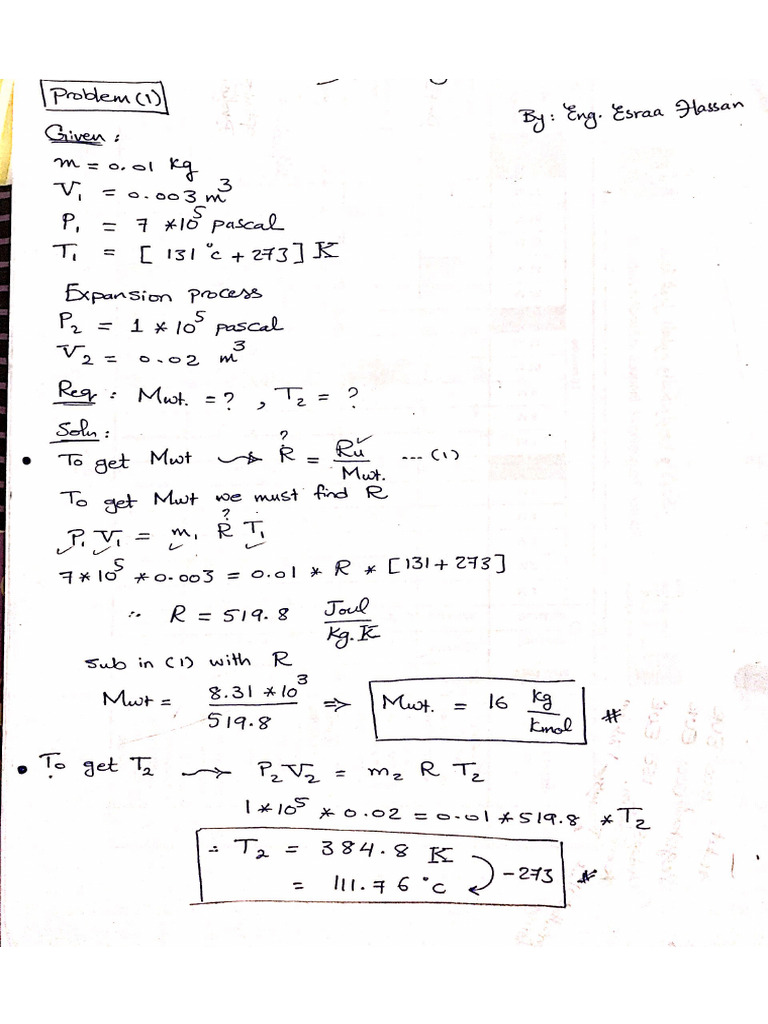 Problem (1)
By: Eng. Esraa Hassan
Given:
m = 0.01 kg
V₁ = 0.003 m³
P₁ = 7 *10⁵ pascal
T₁ = [ 131 °c + 273] K
Expansion process
P₂ = 1 * 10⁵ pascal
V₂ = 0.02 m³
Req : Mwt. = ? , T₂ = ?
Soln :
• To get Mwt ⇝ R? = Ru✓/Mwt. --- (1)
To get Mwt we must find R
P₁ V₁ = m₁ R? T₁
7*10⁵ *0.003 = 0.01 * R * [131+ 273]
∴ R = 519.8 Joul/kg.K
Sub in (1) with R
Mwt = 8.31 *10³/519.8 ⇒ Mwt. = 16 kg/kmol #
• To get T₂ ⇝ P₂V₂ = m₂ R T₂
1*10⁵ * 0.02 = 0.01 *519.8 *T₂
∴ T₂ = 384.8 K
= 111.76 °c -273 #